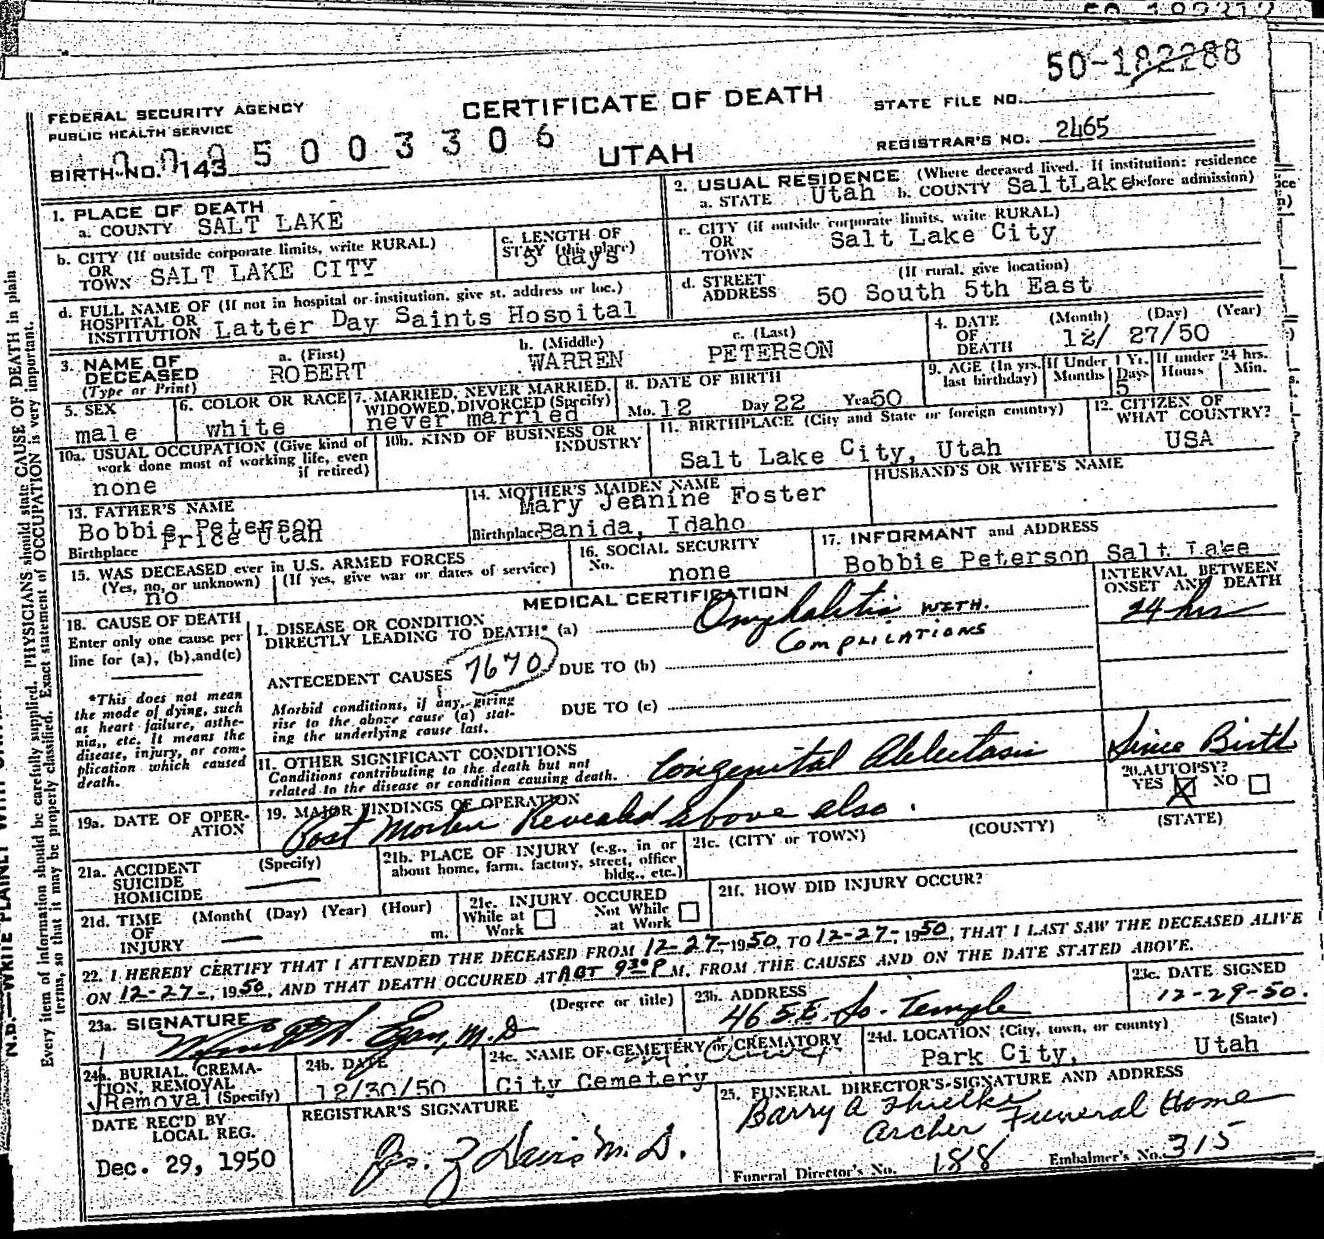 50-182288
FEDERAL SECURITY AGENCY
PUBLIC HEALTH SERVICE
CERTIFICATE OF DEATH
STATE FILE NO.
BIRTH NO. 143
5003306
UTAH
REGISTRAR'S NO. 2465
1. PLACE OF DEATH
a. COUNTY SALT LAKE
2. USUAL RESIDENCE (Where deceased lived. If institution: residence before admission)
a. STATE Utah b. COUNTY SaltLake
b. CITY (If outside corporate limits, write RURAL)
OR
TOWN SALT LAKE CITY
c. LENGTH OF
STAY (this place)
5 days
c. CITY (if outside corporate limits, write RURAL)
OR
TOWN Salt Lake City
d. FULL NAME OF (If not in hospital or institution, give st. address or loc.)
HOSPITAL OR
INSTITUTION Latter Day Saints Hospital
d. STREET
ADDRESS
(If rural, give location)
50 South 5th East
3. NAME OF
DECEASED
(Type or Print)
a. (First)
ROBERT
b. (Middle)
WARREN
c. (Last)
PETERSON
4. DATE
OF
DEATH
(Month) (Day) (Year)
12/ 27/50
5. SEX
male
6. COLOR OR RACE
white
7. MARRIED, NEVER MARRIED,
WIDOWED, DIVORCED (Specify)
never married
8. DATE OF BIRTH
Mo. 12 Day 22 Year 50
9. AGE (In yrs. last birthday)
If Under 1 Yr.
Months Days
5
If under 24 hrs.
Hours Min.
10a. USUAL OCCUPATION (Give kind of
work done most of working life, even
if retired)
none
10b. KIND OF BUSINESS OR
INDUSTRY
11. BIRTHPLACE (City and State or foreign country)
Salt Lake City, Utah
12. CITIZEN OF
WHAT COUNTRY?
USA
13. FATHER'S NAME
Bobbie Peterson
Birthplace Price Utah
14. MOTHER'S MAIDEN NAME
Mary Jeanine Foster
Birthplace Banida, Idaho
HUSBAND'S OR WIFE'S NAME
15. WAS DECEASED ever in U.S. ARMED FORCES
(Yes, no, or unknown) (If yes, give war or dates of service)
no
16. SOCIAL SECURITY
No. none
17. INFORMANT and ADDRESS
Bobbie Peterson Salt Lake
18. CAUSE OF DEATH
Enter only one cause per
line for (a), (b), and (c)
*This does not mean
the mode of dying, such
as heart failure, asthe-
nia, etc. It means the
disease, injury, or com-
plication which caused
death.
MEDICAL CERTIFICATION
INTERVAL BETWEEN
ONSET AND DEATH
I. DISEASE OR CONDITION
DIRECTLY LEADING TO DEATH* (a) Omphalitis WITH.
COMPLICATIONS
24 hrs
ANTECEDENT CAUSES 7670 DUE TO (b)
Morbid conditions, if any, giving
rise to the above cause (a) stat-
ing the underlying cause last.
DUE TO (c)
II. OTHER SIGNIFICANT CONDITIONS
Conditions contributing to the death but not
related to the disease or condition causing death.
Congenital Atelectasis
Since Birth
19a. DATE OF OPER-
ATION
19. MAJOR FINDINGS OF OPERATION
Post Mortem Revealed above also.
20. AUTOPSY?
YES NO
21a. ACCIDENT
SUICIDE
HOMICIDE
(Specify)
21b. PLACE OF INJURY (e.g., in or
about home, farm, factory, street, office
bldg., etc.)
21c. (CITY or TOWN) (COUNTY) (STATE)
21d. TIME
OF
INJURY
(Month( (Day) (Year) (Hour)
m.
21e. INJURY OCCURED
While at
Work
Not While
at Work
21f. HOW DID INJURY OCCUR?
22. I HEREBY CERTIFY THAT I ATTENDED THE DECEASED FROM 12-27-1950, TO 12-27-, 1950, THAT I LAST SAW THE DECEASED ALIVE
ON 12-27-, 1950, AND THAT DEATH OCCURED AT ABT 930 P M. FROM THE CAUSES AND ON THE DATE STATED ABOVE.
23a. SIGNATURE
(Degree or title)
M.D
23b. ADDRESS
465 E. So. Temple
23c. DATE SIGNED
12-29-50.
24a. BURIAL, CREMA-
TION, REMOVAL
(Specify)
Removal
24b. DATE
12/30/50
24c. NAME OF CEMETERY or CREMATORY
City Cemetery
24d. LOCATION (City, town, or county) (State)
Park City, Utah
DATE REC'D BY
LOCAL REG.
Dec. 29, 1950
REGISTRAR'S SIGNATURE
Jos. Z Davis M.D.
25. FUNERAL DIRECTOR'S SIGNATURE AND ADDRESS
Barry A Thielke
Archer Funeral Home
Funeral Director's No. 188 Embalmer's No. 315
N.B.—WRITE PLAINLY
Every item of information should be carefully supplied. PHYSICIANS should state CAUSE OF DEATH in plain
terms, so that it may be properly classified. Exact statement of OCCUPATION is very important.